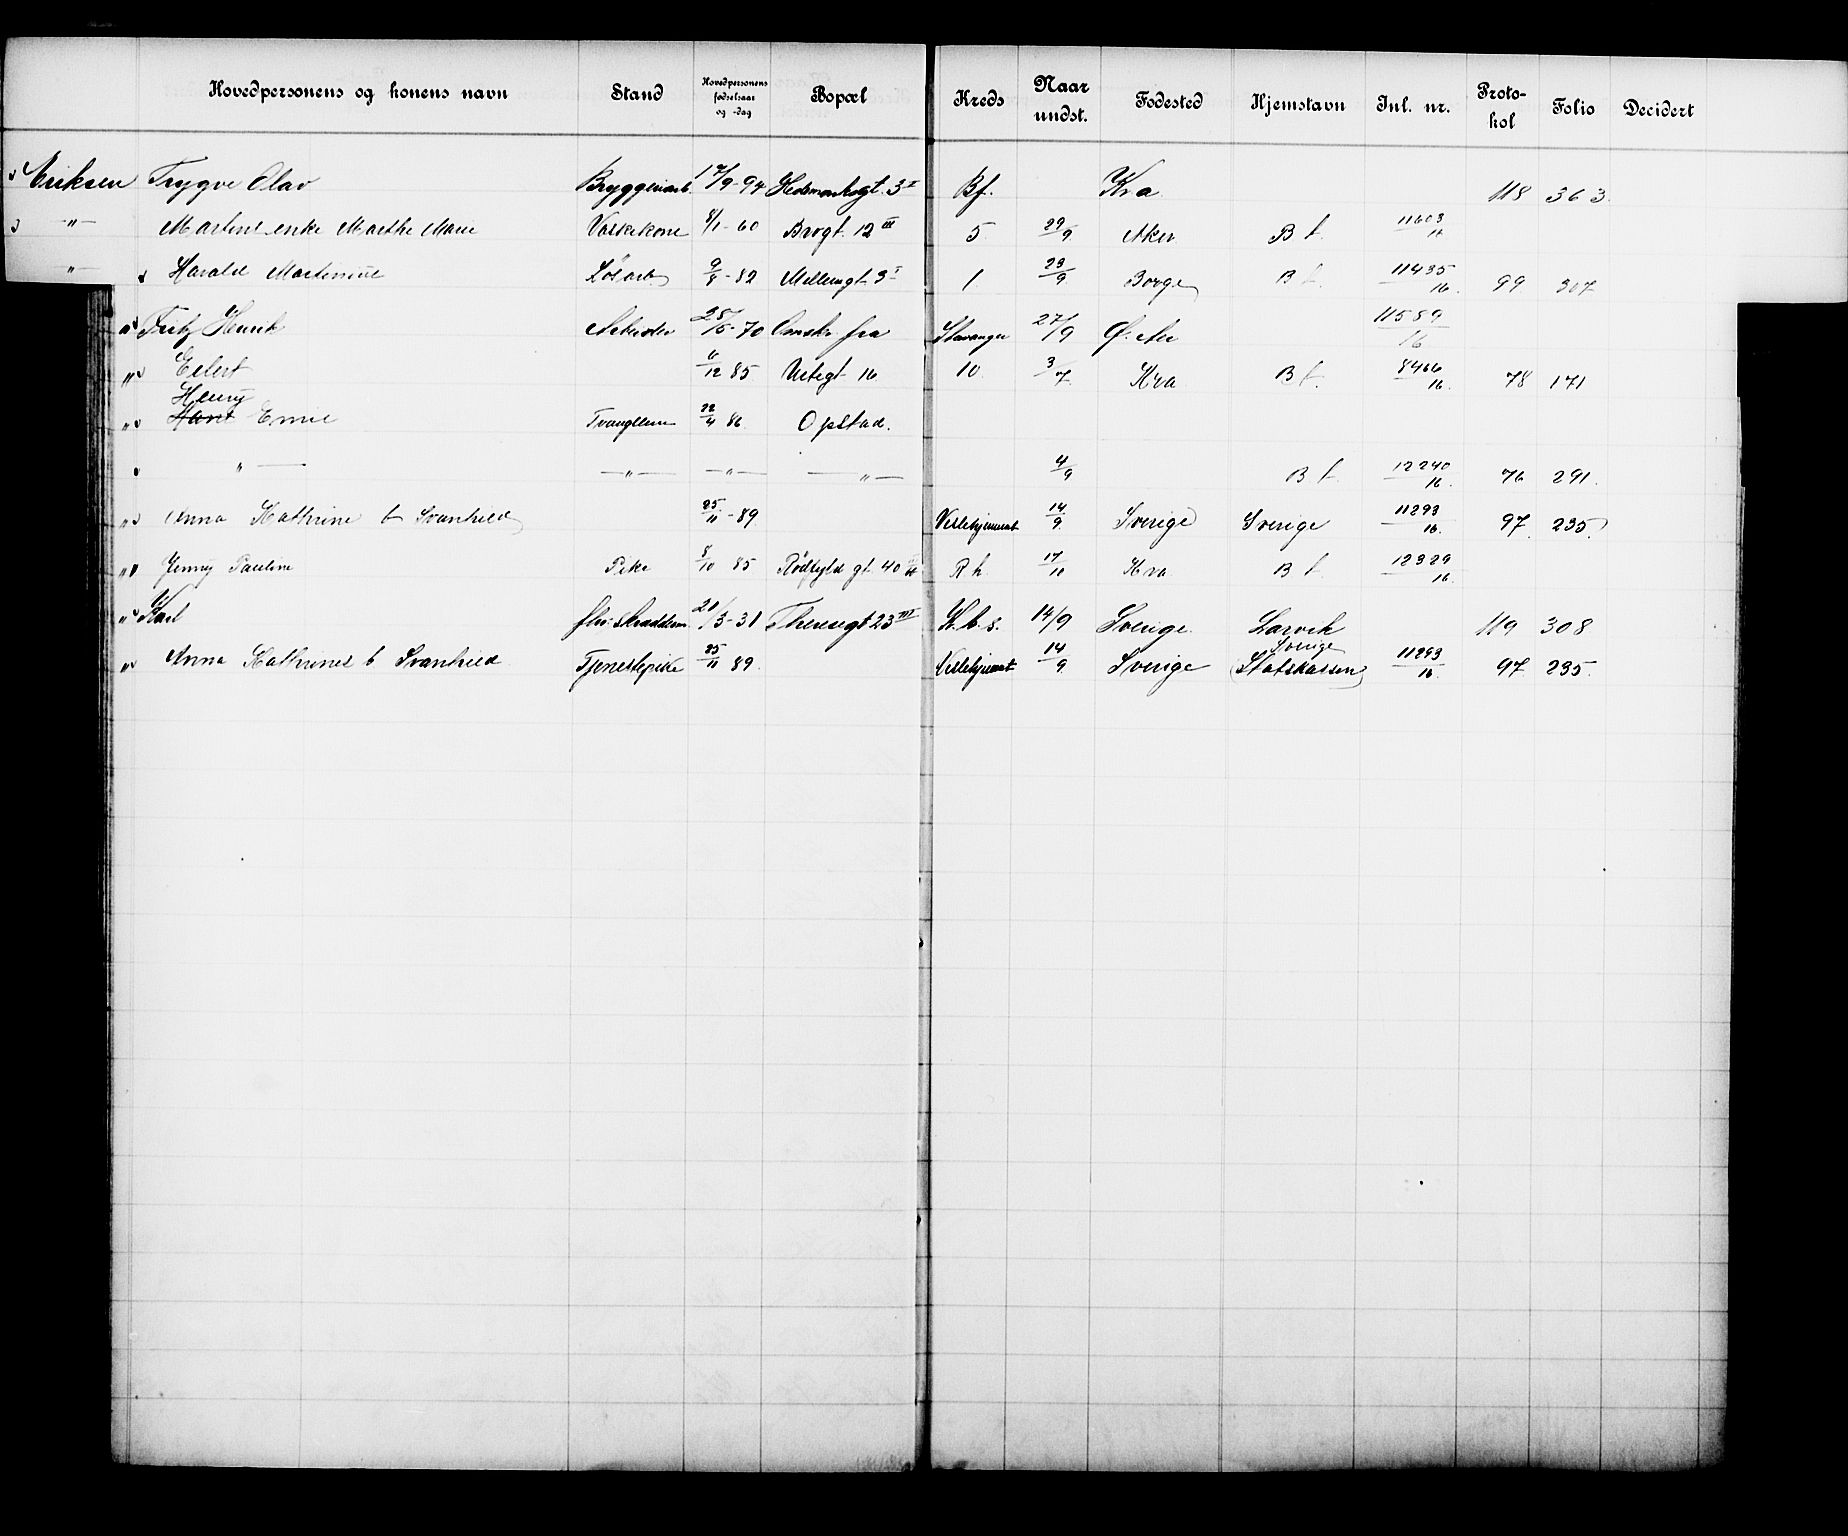 Hovedpersonens og konens navn Stand Hovedpersonens fødselsaar og -dag Bopæl Kreds Naar undst. Fødested Hjemstavn Inl. nr. Protokol Folio Decidert
Eriksen Trygve Olav Bryggeriarb. 17/9-94 Hedemarksgt. 3 II Bf. Kra 118 363.
" Martins enke Marthe Marie Vaskekone 8/1-60 Brogt. 12 III 5. 29/9 Aker B f. 11603/16
" Harald Martinius Løsarb. 9/8-82 Møllergt 3 I 1 23/9 Borge B f. 11435/16. 99 307
" Fritz Henrik Arbeider 25/5-70 Omstr. fra Stavanger 27/9 11589/16
" Eilert 6/12 85 Urtegt 16 10. 3/7 Kra B f. 8466/16. 78 171
" Henry Emil Tvanglem 22/4 86 Opstad.
" " " " 4/9 B f. 12240/16. 76 291.
" Anna Kathrine b Svanhild 25/11-89. 14/9. Sverige Sverige 11293/16. 97. 235.
" Jenny Pauline Pike 8/10 85 Rødfyld gt 40 R h. 17/11 Kra B f. 12329/16.
" Karl fhv. Skrædderm. 21/3-31 Theresegt 23 III K.b.s. 14/9 Sverige. Larvik 119 308
" Anna Kathrines b Svanhild Tjenestepike 25/11 89. 14/9. Sverige Sverige (Statskassen) 11293/16. 97 235.